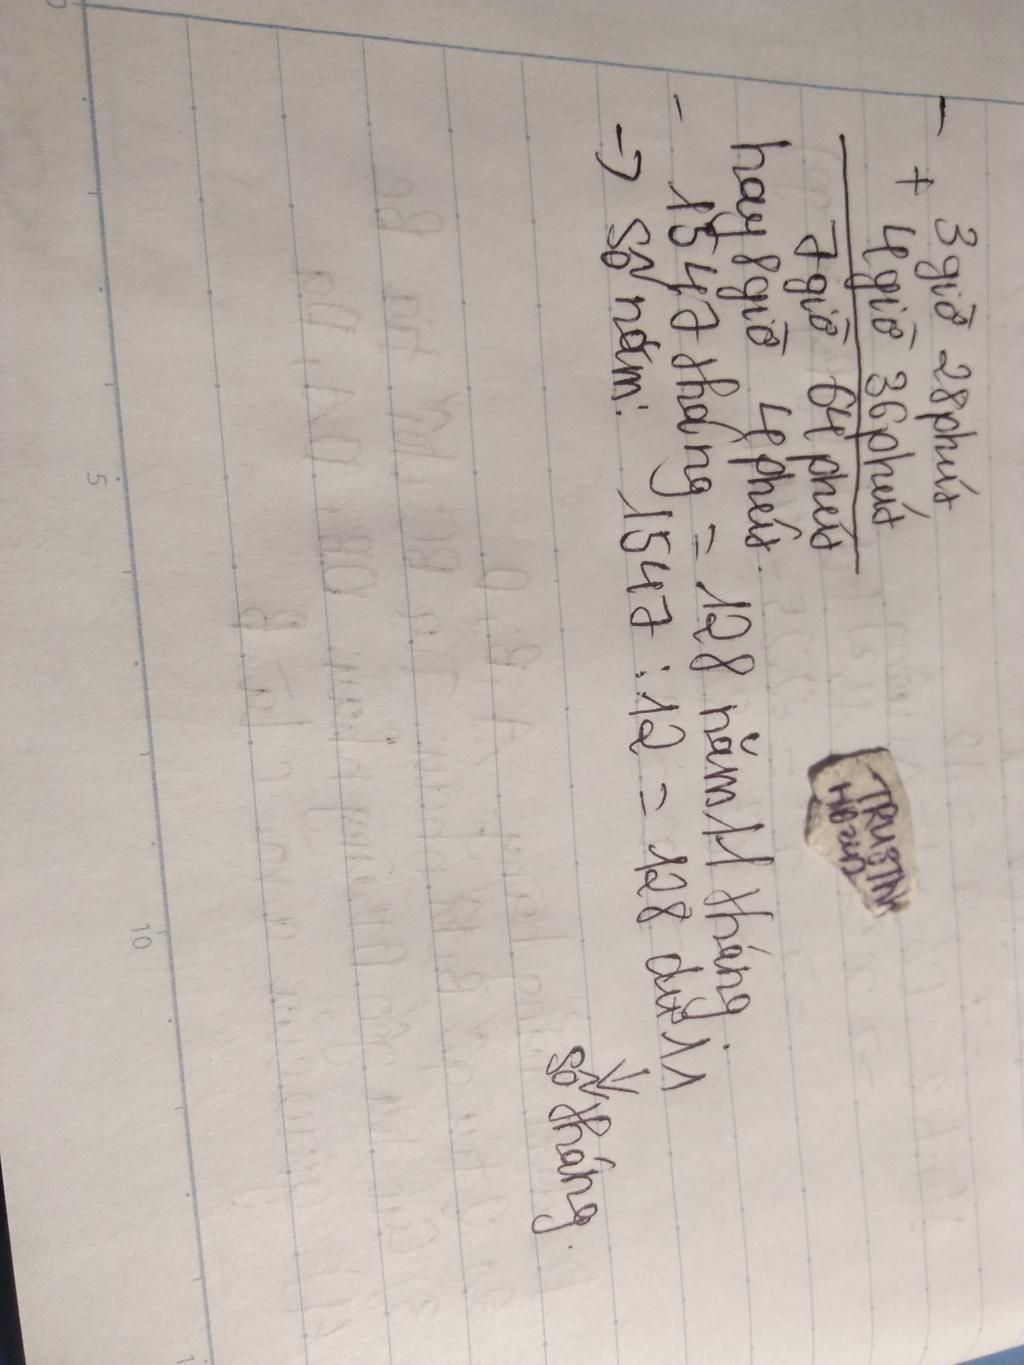 - 3 giờ 28 phút
+ 4 giờ 36 phút
7 giờ 64 phút
hay 8 giờ 4 phút.
- 1547 tháng = 128 năm 11 tháng.
-> Số năm: 1547 : 12 = 128 dư 11
số tháng.
5
10